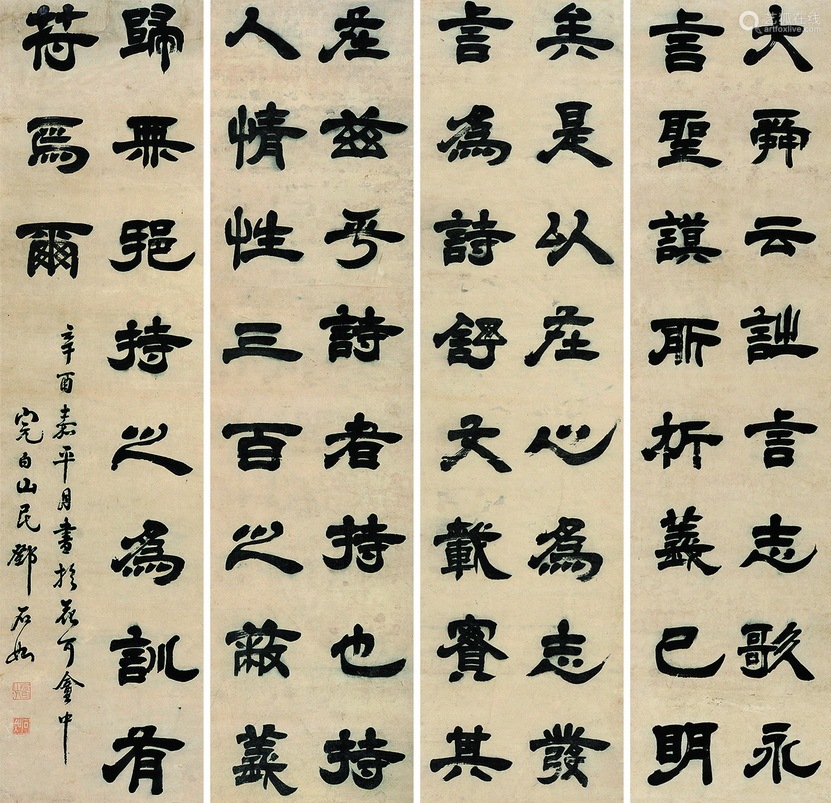 大舜云詩言志歌永
言聖謨所析義已明
矣是以在心為志發
言為詩舒文載實其
在兹乎詩者持也持
人情性三百之蔽義
歸無邪持之為訓有
符焉爾
辛酉嘉平月書於花可盦中
完白山民鄧石如
artfoxlive.com